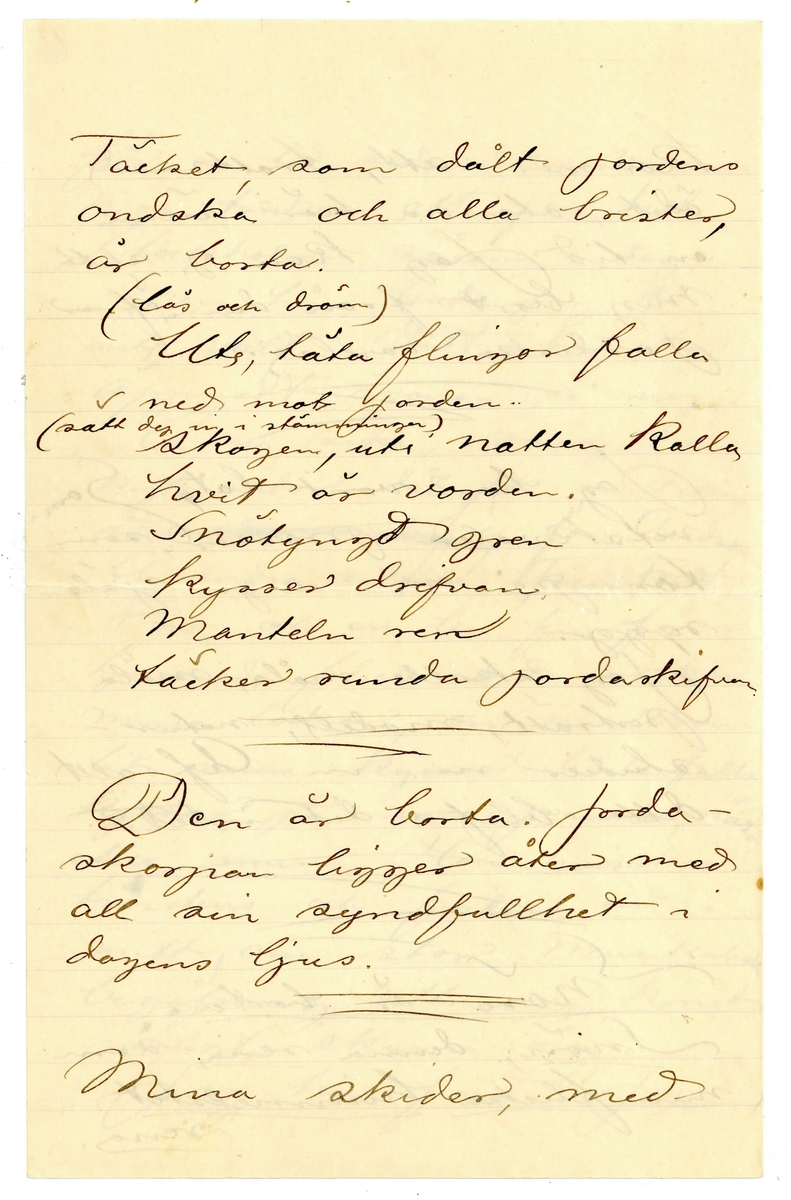 Täcket, som dålt jordens
ondska och alla brister,
är borta.
(läs och dröm)
Ute, täta flingor falla
ned mot jorden.
(sätt dej in i stämningen)
Skogen, uti natten kalla
hvit är vorden.
Snötyngd gren
kysser drifvan.
Manteln ren
täcker runda jordaskifvan.
Den är borta. Jorda-
skorpan ligger åter med
all sin syndfullhet i
dagens ljus.
Mina skidor, med